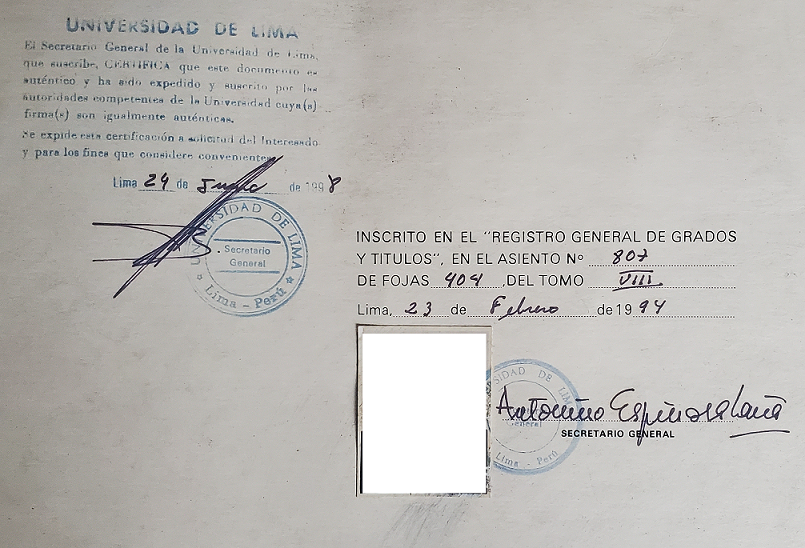 UNIVERSIDAD DE LIMA
El Secretario General de la Universidad de Lima,
que suscribe, CERTIFICA que este documento es
auténtico y ha sido expedido y suscrito por las
autoridades competentes de la Universidad cuya(s)
firma(s) son igualmente auténticas.
Se expide esta certificación a solicitud del Interesado
y para los fines que considere convenientes
Lima 24 de Junio de 1998
UNIVERSIDAD DE LIMA
Secretario
General
Lima - Perú
INSCRITO EN EL "REGISTRO GENERAL DE GRADOS
Y TITULOS", EN EL ASIENTO Nº 807
DE FOJAS 404 ,DEL TOMO VIII
Lima, 23 de Febrero de 1994
SIDAD DE LIM
Antonino Espinosa Laña
General
SECRETARIO GENERAL
Lima - Perú